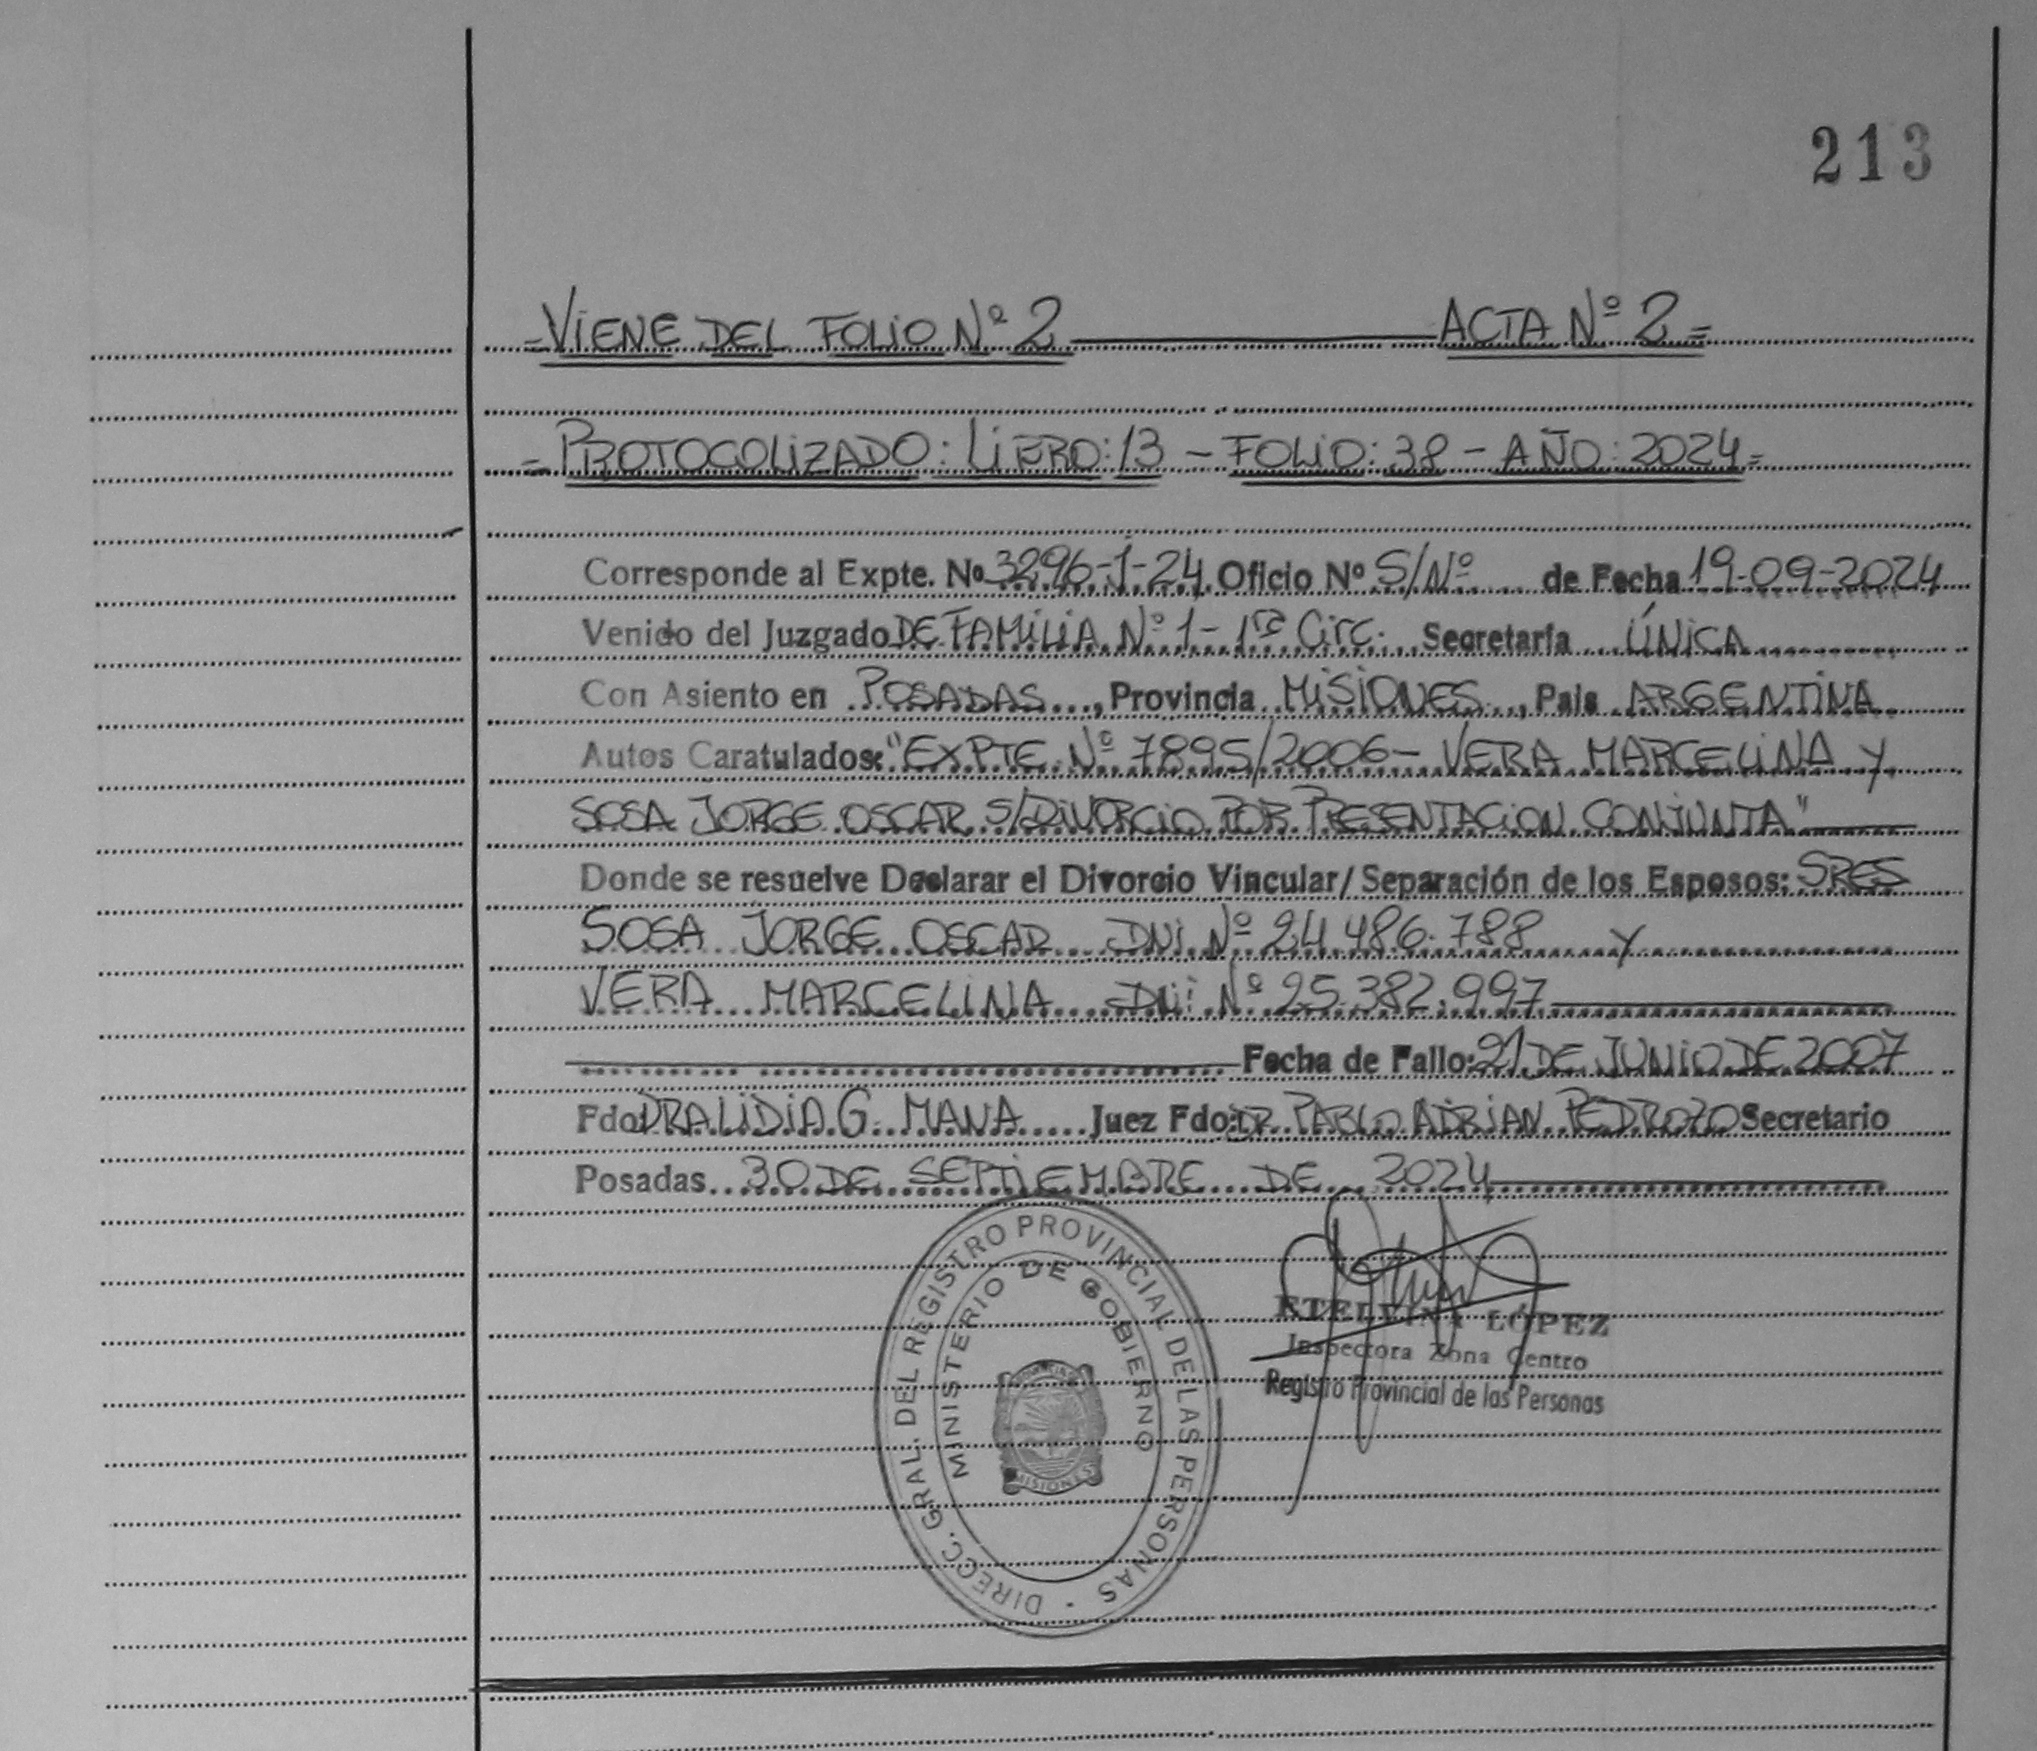 213
=VIENE DEL FOLIO Nº 2 ACTA Nº 2=
=PROTOCOLIZADO: LIBRO: 13 - FOLIO: 38 - AÑO: 2024=
Corresponde al Expte. Nº 3296-1-24 Oficio Nº S/Nº de Fecha 19-09-2024
Venido del Juzgado DE FAMILIA Nº 1- 1ra Circ. Secretaría ÚNICA
Con Asiento en POSADAS, Provincia MISIONES, País ARGENTINA
Autos Caratulados: "EXPTE Nº 7895/2006- VERA MARCELINA Y
SOSA JORGE OSCAR S/DIVORCIO POR PRESENTACION CONJUNTA"
Donde se resuelve Declarar el Divorcio Vincular/ Separación de los Esposos: SRES
SOSA JORGE OSCAR DNI Nº 24.486.788 Y
VERA MARCELINA DNI Nº 25.382.997
Fecha de Fallo: 21 DE JUNIO DE 2007
Fdo: DRA LIDIA G. MANA Juez Fdo: DR. PABLO ADRIAN PEDROZO Secretario
Posadas 30 DE SEPTIEMBRE DE 2024
DIRECC. GRAL. DEL REGISTRO PROVINCIAL DE LAS PERSONAS
MINISTERIO DE GOBIERNO
MISIONES
ETELVINA LÓPEZ
Inspectora Zona Centro
Registro Provincial de las Personas